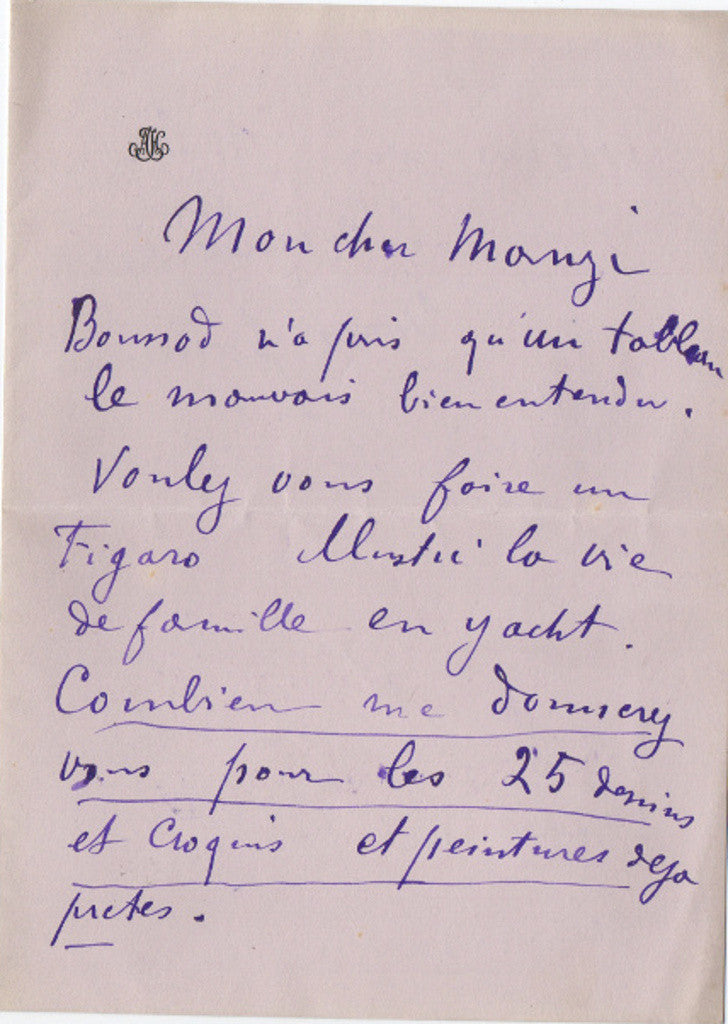 Mon cher Manzi
Boussod n'a pris qu'un tableau
le mauvais bien entendu.
Voulez vous faire un
Figaro Illustré la vie
de famille en yacht.
Combien me donnerez
vous pour les 25 dessins
et croquis et peintures deja
pretes.